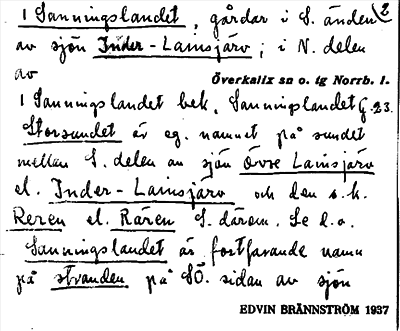 1 Sanningslandet, gårdar i S. änden 2
av sjön Inder-Lainsjärv; i N. delen
av
Överkalix sn o. tg Norrb. l.
1 Sanningslandet bek. Sanningslandet G. 23.
Storsundet är eg. namnet på sundet
mellan S. delen av sjön Övre Lainsjärv
el. Inder-Lainsjärv och den s. k.
Reren el. Rären S. därom. Se d. o.
Sanningslandet är fortfarande namn
på stranden på SÖ. sidan av sjön
EDVIN BRÄNNSTRÖM 1937